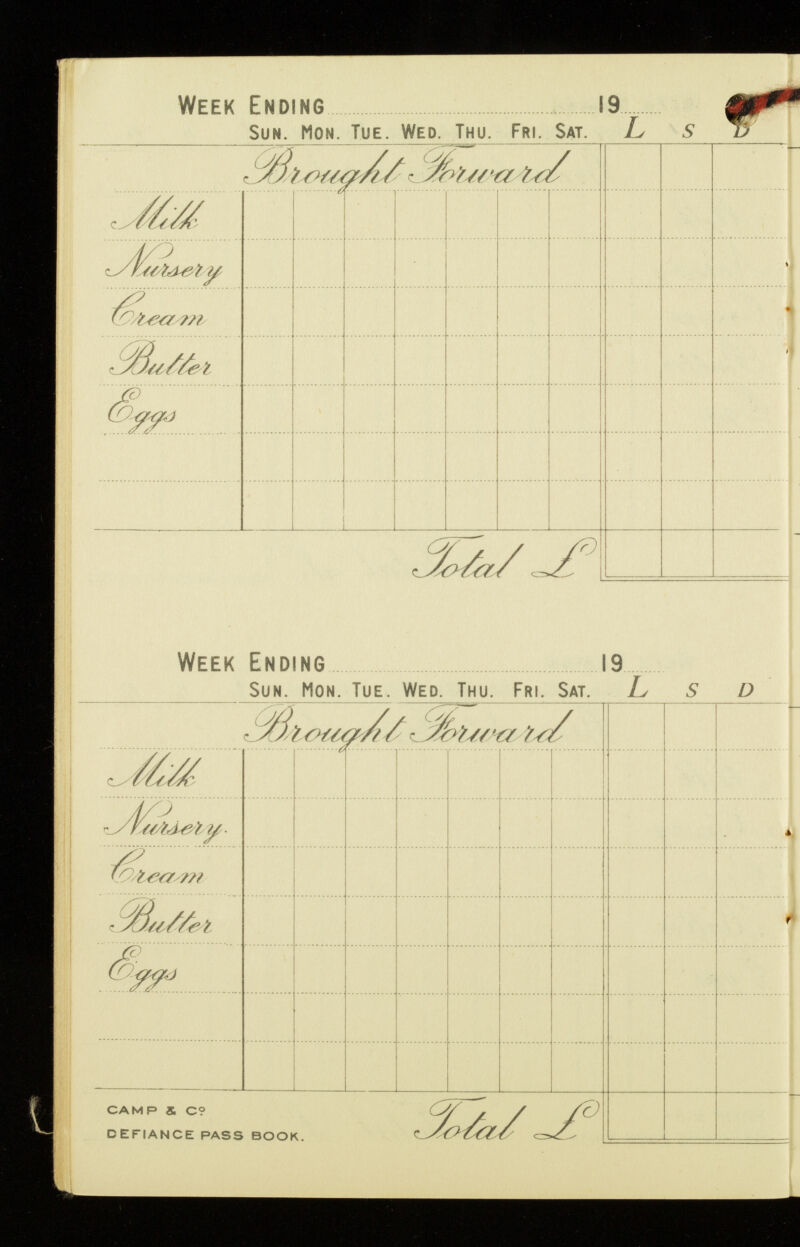 WEEK ENDING 19
SUN. MON. TUE. WED. THU. FRI. SAT. L S D
Brought Forward
Milk
Nursery
Cream
Butter
Eggs
Total £
WEEK ENDING 19
SUN. MON. TUE. WED. THU. FRI. SAT. L S D
Brought Forward
Milk
Nursery.
Cream
Butter
Eggs
CAMP & Co. Total £
DEFIANCE PASS BOOK.